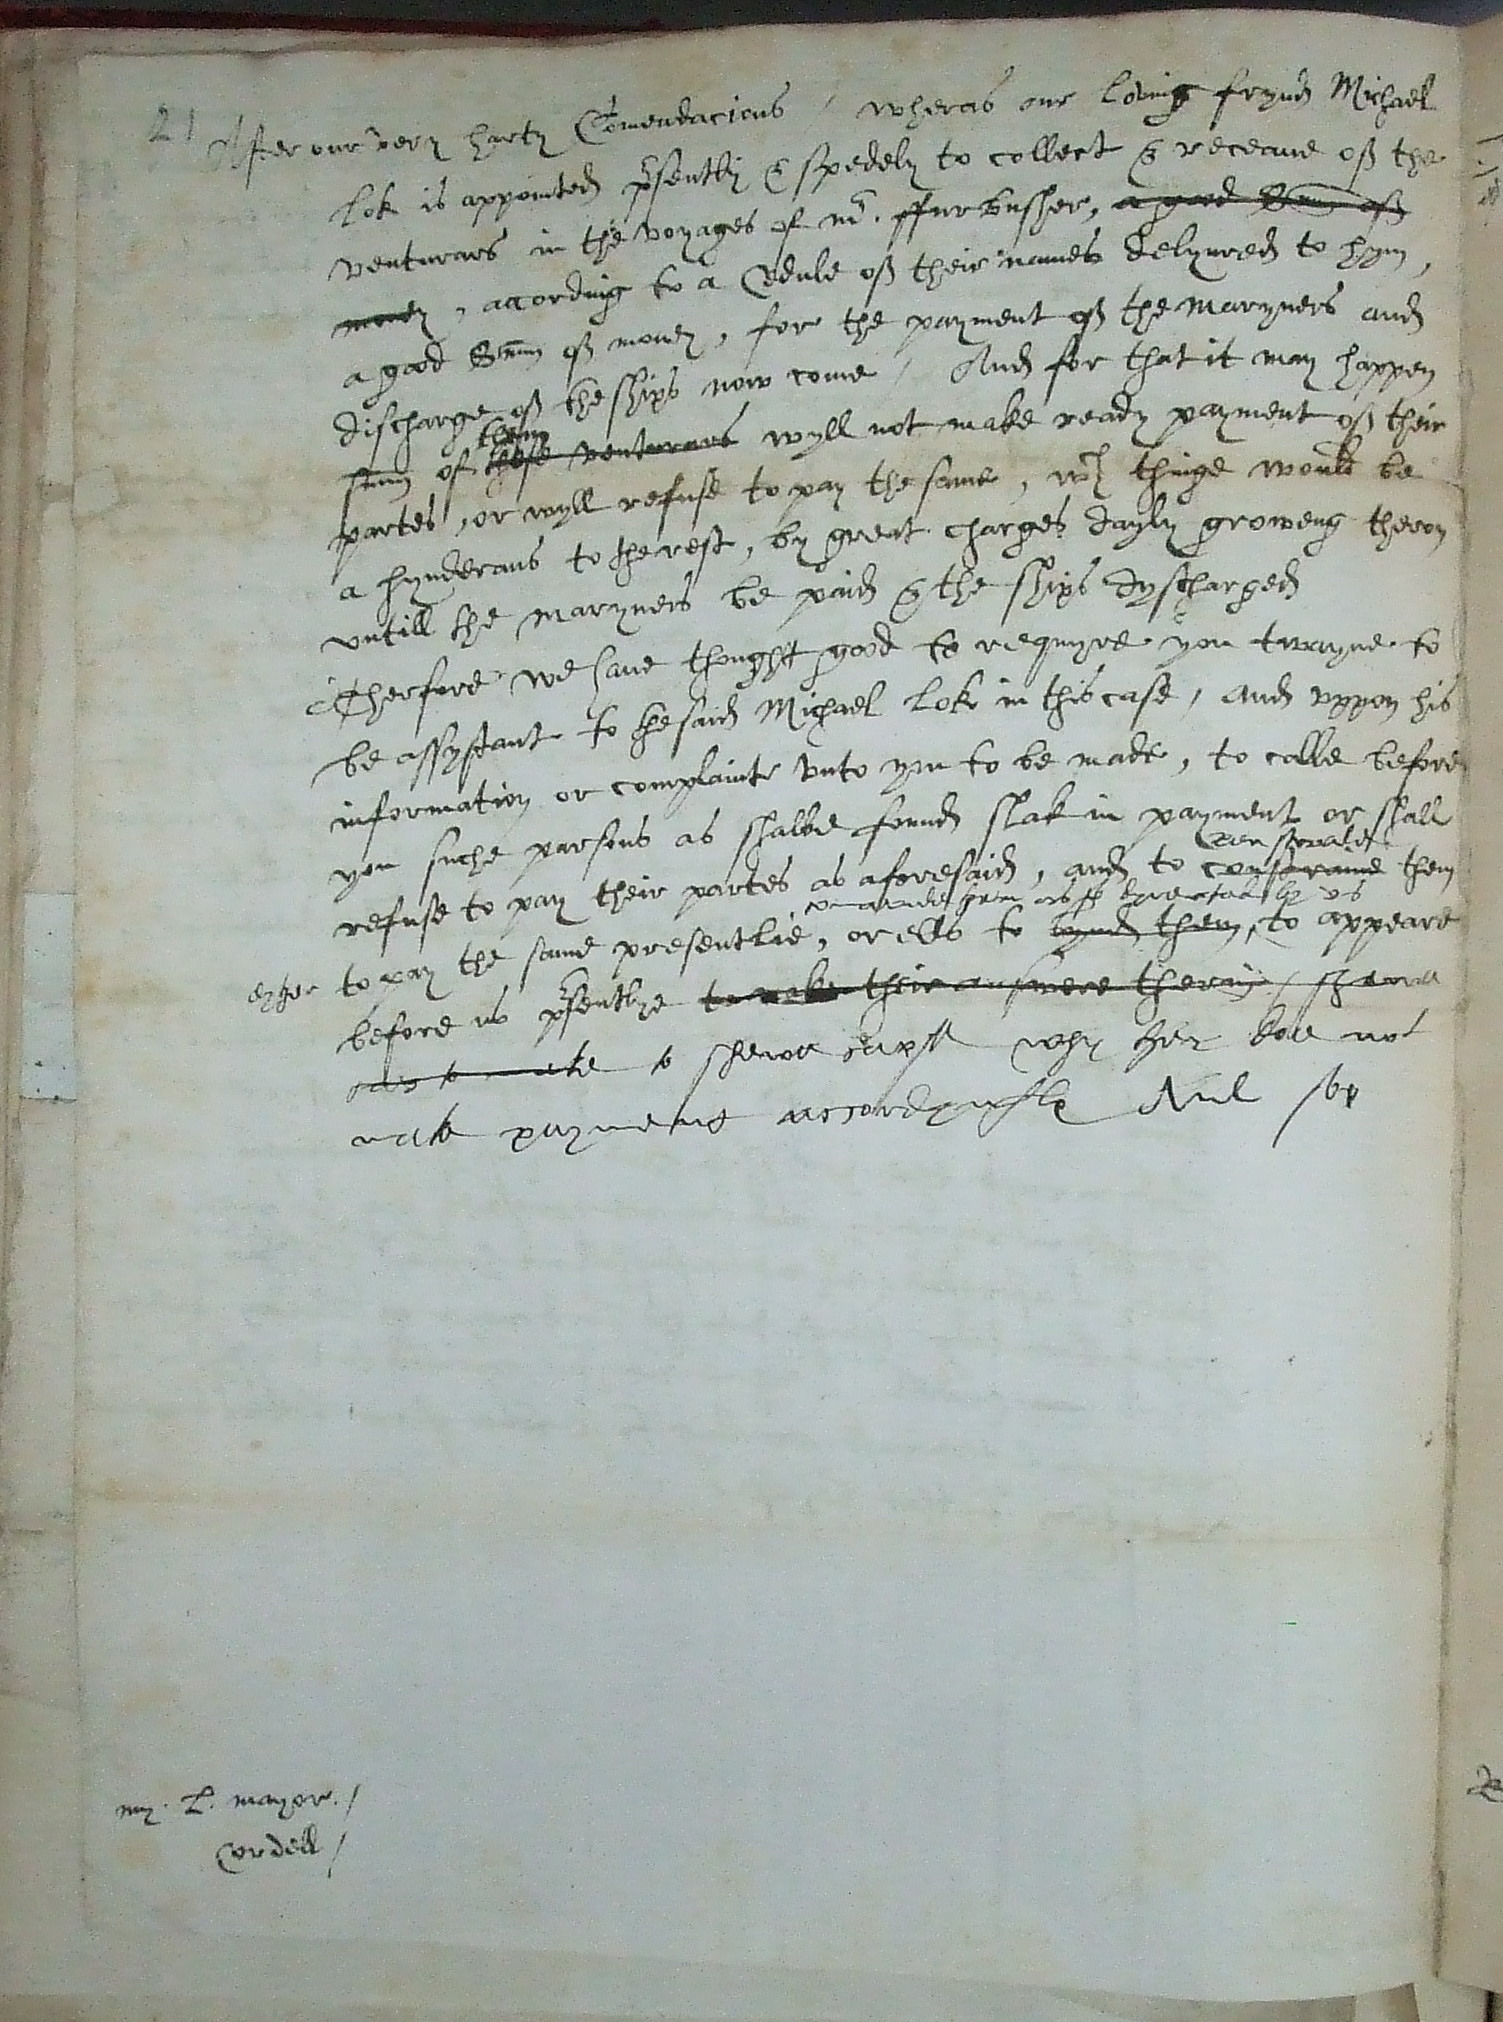 21 After our very harty Comendacions / wheras our loving frynd Michael
Lok is appointed p'sently & spedely to collect & receave of the
venturars in the voyages of mr. ffurbusher, a good Sum of
money, acording to a Cedule of their names delyvred to hym,
a good Sum of mony, for the payment of the maryners and
discharge of the ships now come / And for that it may happen
them
sum of those venturars wyll not make ready payment of their
partes, or wyll refuse to pay the same, wch thinge would be
a hynderans to the rest, by great charges dayly groweng theron
vntill the maryners be paid & the ships dyscharged
Therfore we have thought good to requyre you twayne to
be assystant to the said Michael Lok in this case, and vppon his
information or complainte vnto you to be made, to calle before
you suche parsons as shalbe found slak in payment or shall
refuse to pay their partes as aforesaid, and to constrame them
by us
eyther to pay the same presentlie, or ells to bynd them, to appeare
before us p'sentlye to make their answere therin / shewe
to shewe cause why they doe not
make payment accordyngly And so
my. L. mayor. /
Cordell /